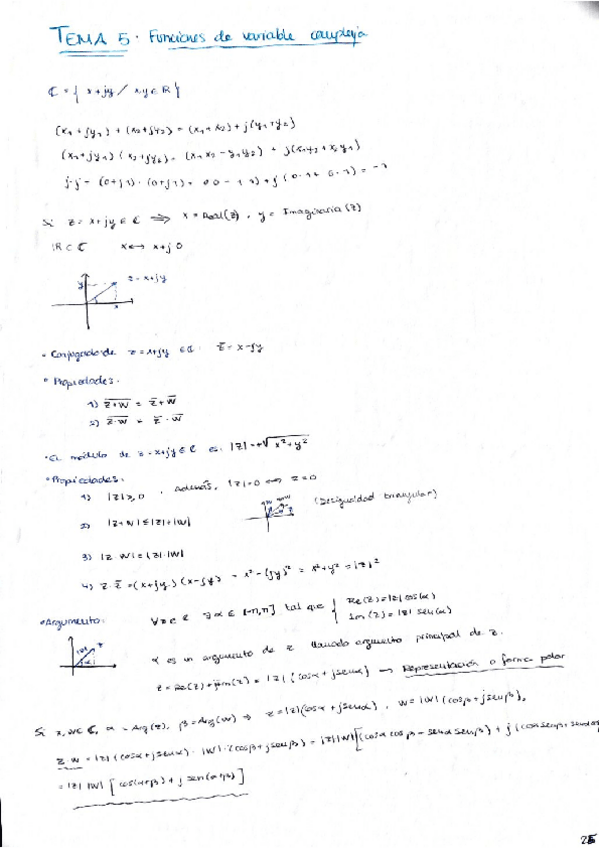 TEMA 5. Funciones de variable compleja
ℂ = { x+jy / x,y ∈ ℝ }
(x₁+jy₁) + (x₂+jy₂) = (x₁+x₂) + j(y₁+y₂)
(x₁+jy₁)·(x₂+jy₂) = (x₁x₂ - y₁y₂) + j(x₁y₂ + x₂y₁)
j·j = (0+j1)·(0+j1) = (0·0 - 1·1) + j(0·1+0·1) = -1
Si z = x+jy ∈ ℂ ⟹ x = Real(z), y = Imaginaria(z)
ℝ ⊂ ℂ x ⟷ x+j0
y z = x+jy
x
• Conjugado de z = x+jy ∈ ℂ: z̅ = x-jy
• Propiedades.
1) \overline{z+w} = z̅ + w̅
2) \overline{z·w} = z̅ · w̅
• El módulo de z = x+jy ∈ ℂ es: |z| = +√(x²+y²)
• Propiedades.
1) |z| ≥ 0, además, |z| = 0 ⟺ z = 0
2) |z+w| ≤ |z|+|w| (Desigualdad triangular)
3) |z·w| = |z|·|w|
4) z·z̅ = (x+jy)(x-jy) = x² - (jy)² = x²+y² = |z|²
• Argumento: ∀z ∈ ℂ ∃α ∈ [-π,π] tal que { Re(z) = |z| cos(α)
Im(z) = |z| sen(α)
|z| z α
α es un argumento de z llamado argumento principal de z.
z = Re(z) + jIm(z) = |z| (cosα + jsenα) → Representación o forma polar
Si z,w ∈ ℂ, α = Arg(z), β = Arg(w) ⇒ z = |z|(cosα + jsenα), w = |w|(cosβ + jsenβ),
z·w = |z|(cosα + jsenα)·|w|·(cosβ + jsenβ) = |z||w| [(cosα cosβ - senα senβ) + j(cosα senβ + senα
= |z||w| [cos(α+β) + j sen(α+β)]
25